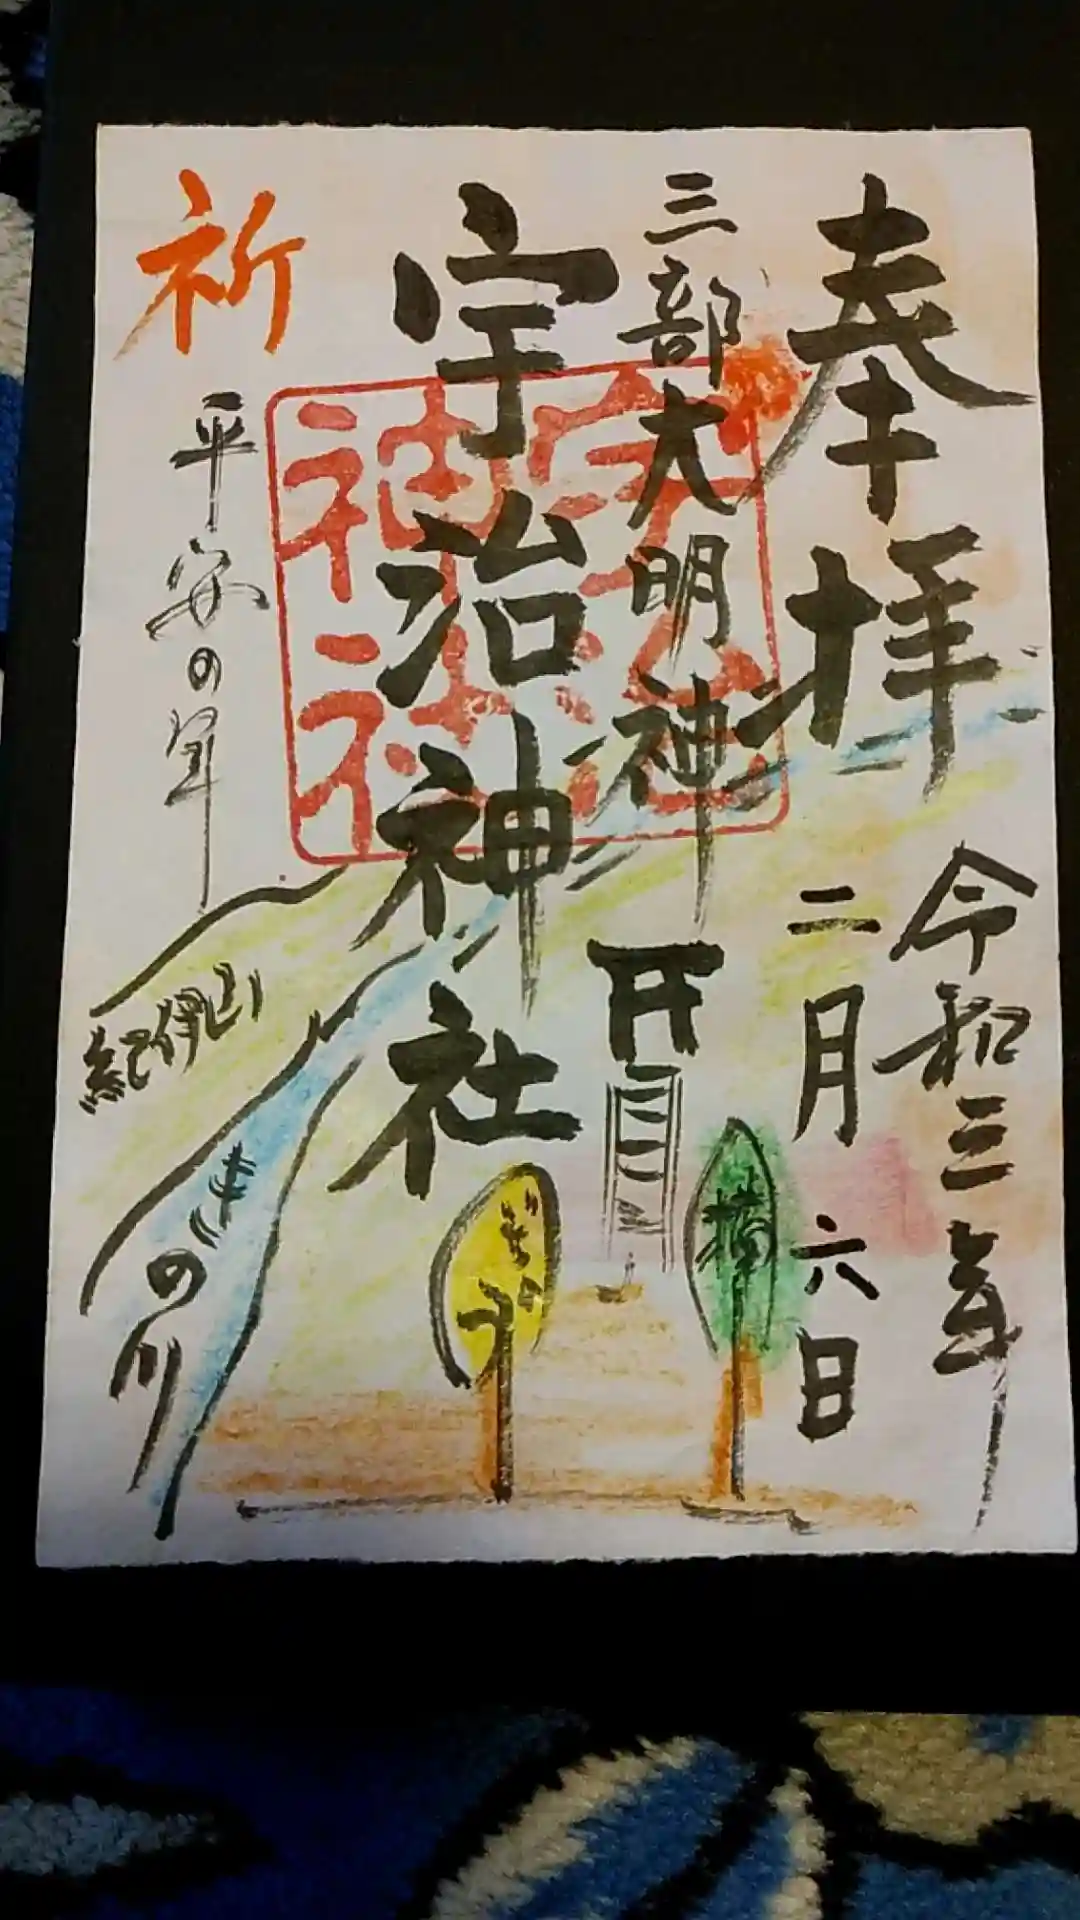 奉拝
令和三年
二月六日
三部大明神
宇治神社
宇治
神社
祈
平安の年
紀伊山
きの川
楠